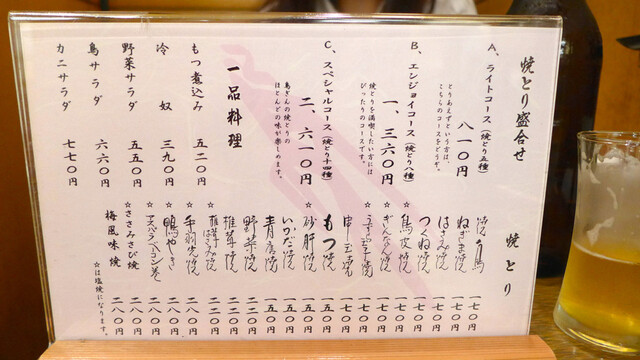 焼とり盛合せ
A、ライトコース(焼とり五種)
八一〇円
とりあえずという方は、
こちらのコースをどうぞ。
B、エンジョイコース(焼とり八種)
一、三六〇円
焼とりを満喫したい方には
ぴったりのコースです。
C、スペシャルコース(焼とり十四種)
二、六一〇円
鳥ぎんの焼とりの
ほとんどの味が楽しめます。
一品料理
もつ煮込み 五二〇円
冷奴 三九〇円
野菜サラダ 五五〇円
鳥サラダ 六六〇円
カニサラダ 七七〇円
焼とり
一七〇円
ねぎま焼 一七〇円
はさみ焼 一七〇円
つくね焼 一七〇円
☆鳥皮焼 一七〇円
☆ぎんなん焼 一七〇円
☆うずら玉子焼 一七〇円
一七〇円
もつ焼 一五〇円
☆砂肝焼 一五〇円
いかだ焼 一五〇円
青唐焼 一五〇円
野菜焼 二二〇円
☆椎茸焼 二二〇円
椎茸はさみ焼 二二〇円
☆手羽先焼 二八〇円
☆鴨やき 二八〇円
アスパラベーコン巻 二八〇円
☆ささみさび焼 二八〇円
梅風味焼 二八〇円
☆は塩焼になります。